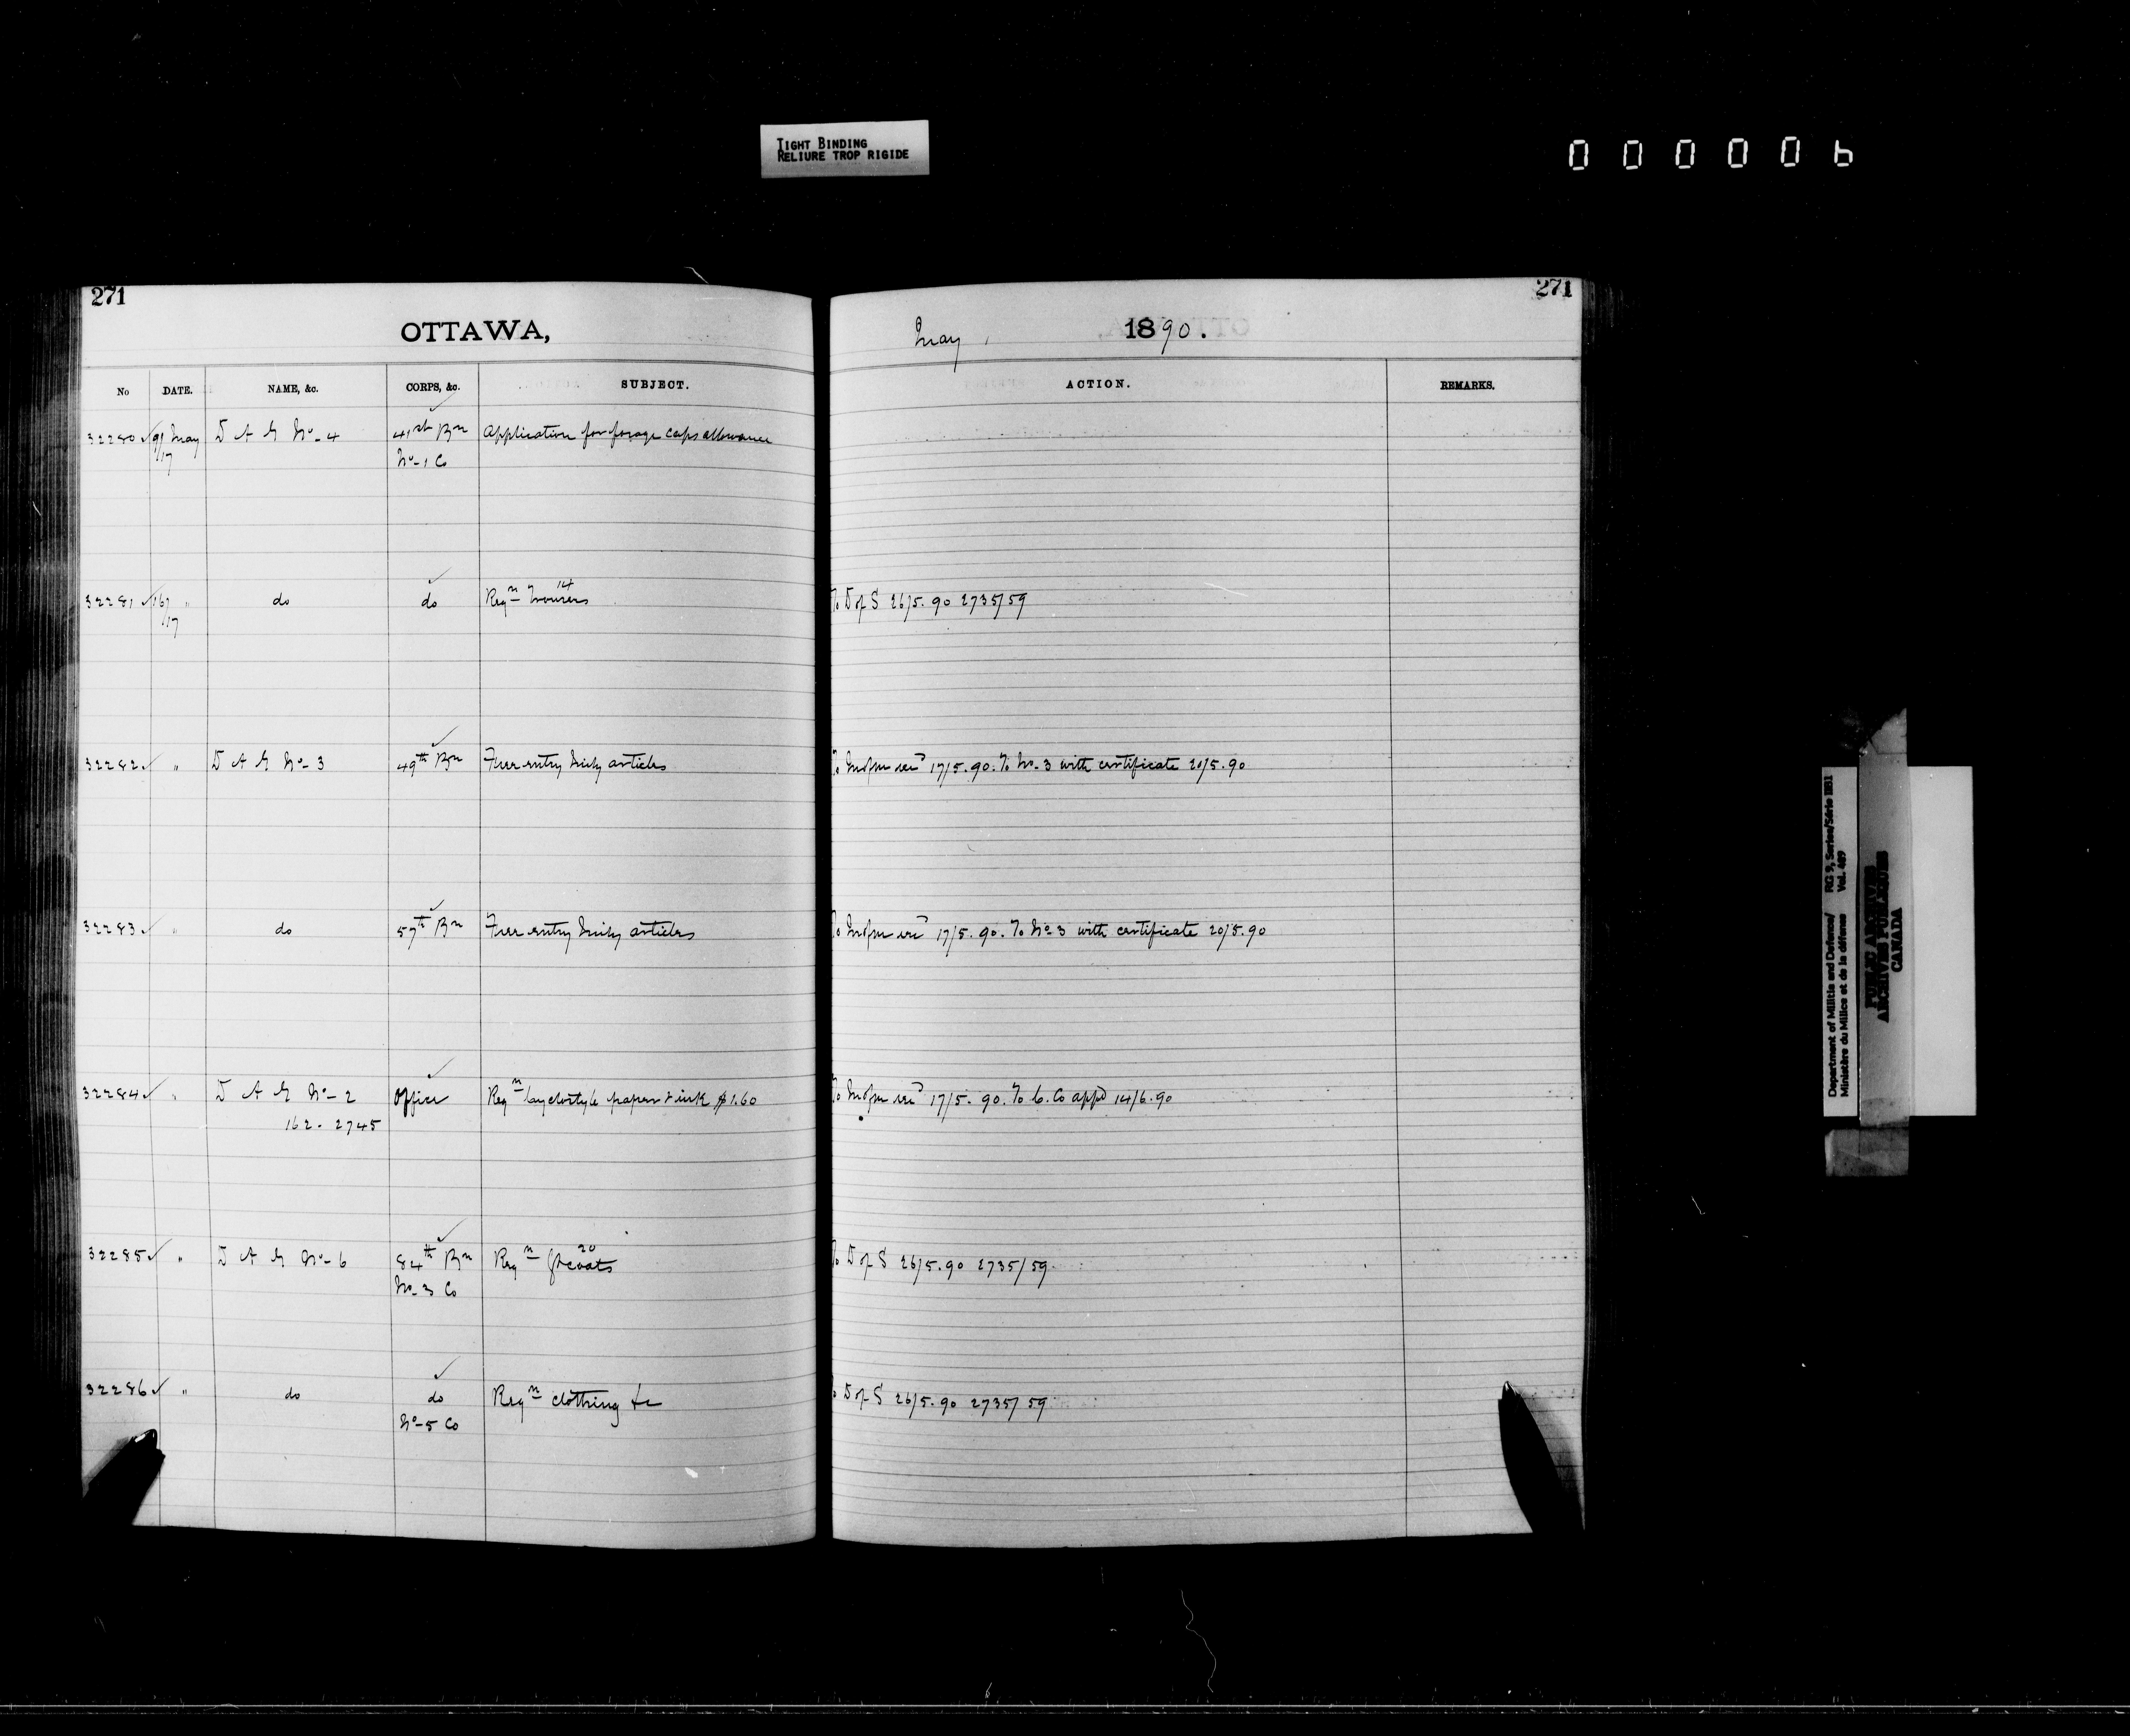 TIGHT BINDING
RELIURE TROP RIGIDE
000006
271
271
OTTAWA,
May, 1890.
No DATE. NAME, &c. CORPS, &c. SUBJECT. ACTION. REMARKS.
32280 ✓ 9/ May D A G No-4 41st Bn Application for forage caps allowance
17 No-1 Co
14
32281 ✓ 16/ " do do Reqn Trousers To D of S 26/5.90 2735/59
17
32282 ✓ " D A G No-3 49th Bn Free entry articles To 17/5.90. To No-3 with certificate 20/5.90
32283 ✓ " do 57th Bn Free entry articles To 17/5.90. To No 3 with certificate 20/5.90
32284 ✓ " D A G No-2 Office Reqn cyclostyle paper & ink $1.60 To 17/5.90. To C. Co appd 14/6.90
162-2745
20
32285 ✓ " D A G No-6 84th Bn Reqn Gtcoats To D of S 26/5.90 2735/59
No-3 Co
32286 ✓ " do do Reqn clothing &c D of S 26/5.90 2735/59
No-5 Co
Department of Militia and Defence/ RG 9, Series/Série IIB1
Ministère du Milice et de la défense Vol. 489
PUBLIC ARCHIVES
ARCHIVES PUBLIQUES
CANADA